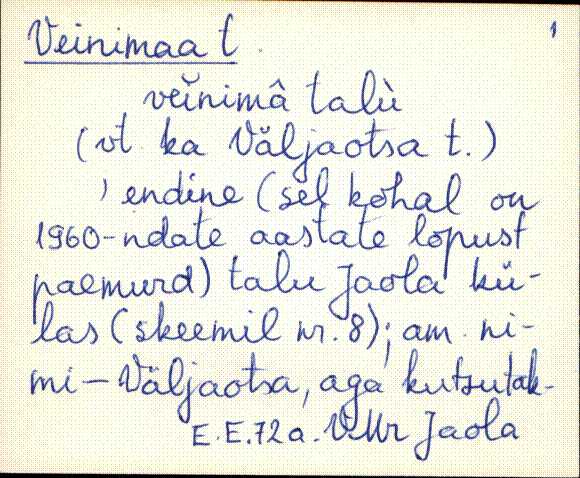 Veinimaa t. 1
veinimâ talù
(vt. ka Väljaotsa t.)
’ endine (sel kohal on
1960-ndate aastate lõpust
paemurd) talu Jaola kü-
las (skeemil nr. 8); am. ni-
mi – Väljaotsa, aga kutsutak-
E.E.72a. VMr Jaola